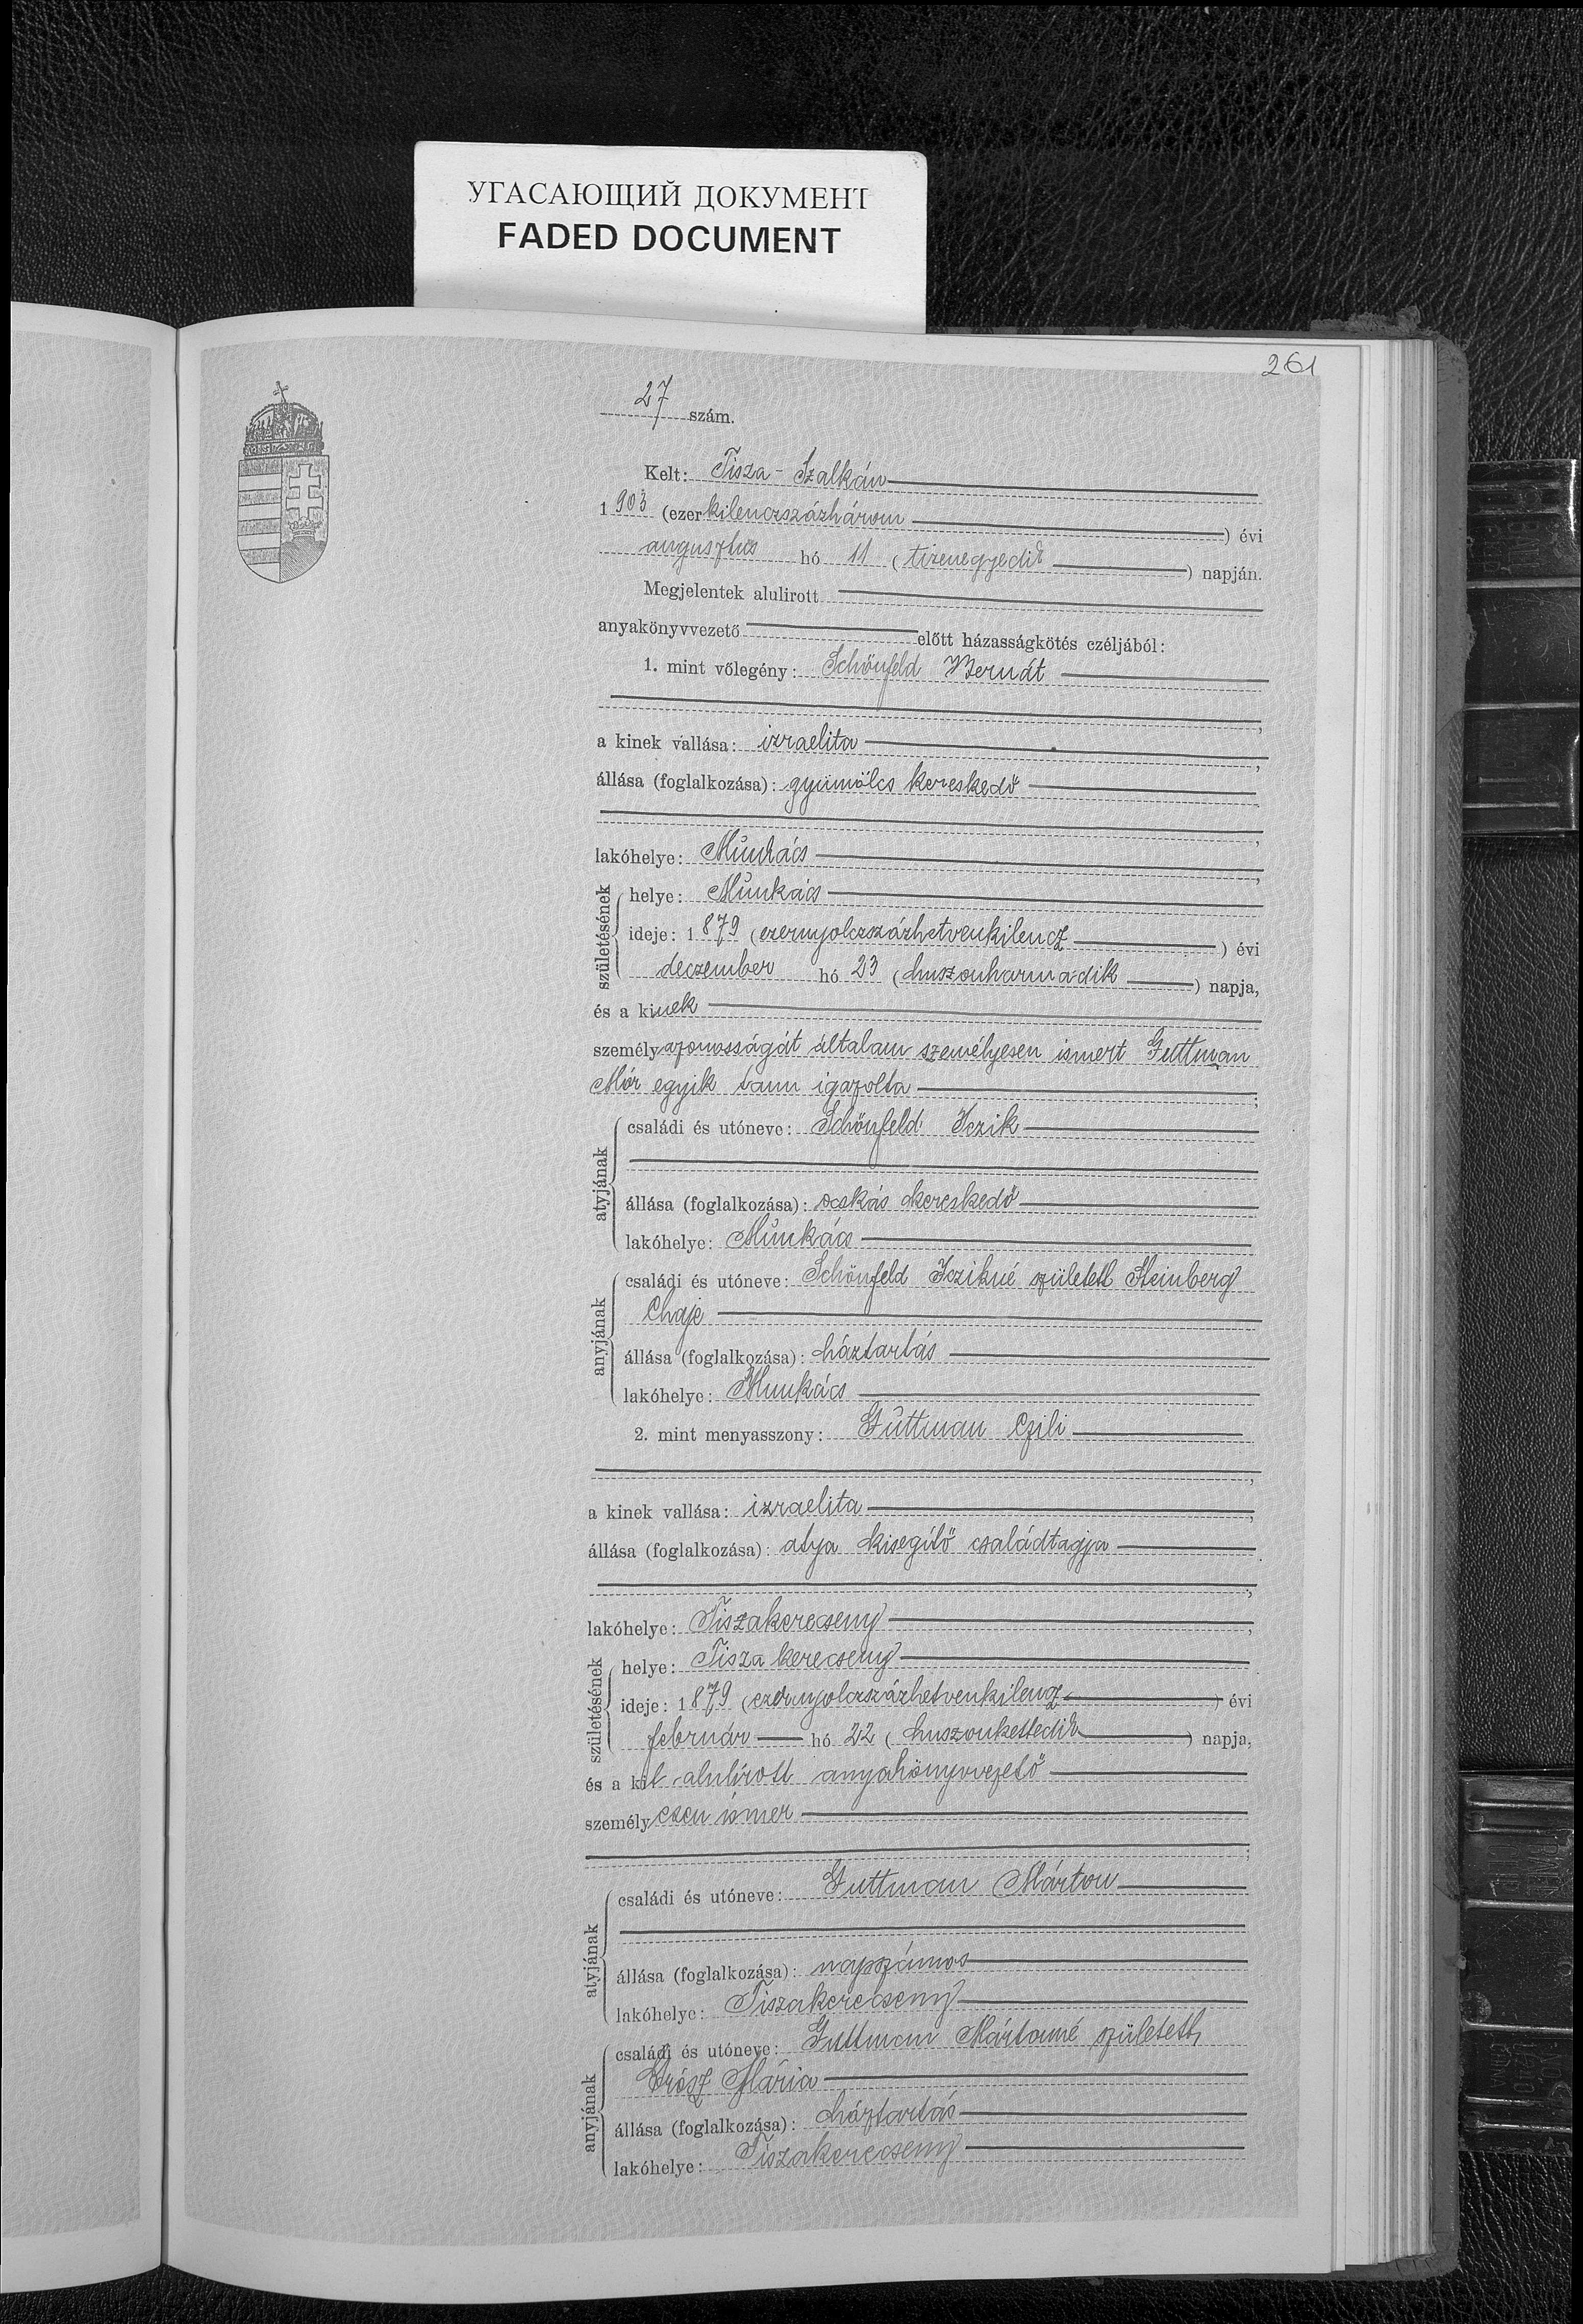 УГАСАЮЩИЙ ДОКУМЕНТ
FADED DOCUMENT
261
27 szám.
Kelt: Tisza-Szalkán
1903 (ezer kilenczszázhárom) évi
augusztus hó 11 (tizenegyedik) napján.
Megjelentek alulirott
anyakönyvvezető előtt házasságkötés czéljából:
1. mint vőlegény: Schönfeld Bernát
a kinek vallása: izraelita,
állása (foglalkozása): gyümölcs kereskedő
lakóhelye: Munkács,
születésének
helye: Munkács
ideje: 1879 (ezernyolczszázhetvenkilencz) évi
deczember hó 23 (huszonharmadik) napja,
és a kinek
személyazonosságát általam személyesen ismert Guttman
Mór egyik tanu igazolta;
atyjának
családi és utóneve: Schönfeld Iczik
állása (foglalkozása): ócskás kereskedő
lakóhelye: Munkács
anyjának
családi és utóneve: Schönfeld Icziknė született Steinberg
Chaje
állása (foglalkozása): háztartás
lakóhelye: Munkács
2. mint menyasszony: Guttman Czili
a kinek vallása: izraelita,
állása (foglalkozása): atya kisegítő családtagja
lakóhelye: Tiszakerecseny,
születésének
helye: Tisza kerecseny
ideje: 1879 (ezernyolczszázhetvenkilencz) évi
február hó 22 (huszonkettedik) napja,
és a kit alulírott anyakönyvvezető
személyesen ismer
atyjának
családi és utóneve: Guttman Márton
állása (foglalkozása): napszámos
lakóhelye: Tiszakerecseny
anyjának
családi és utóneve: Guttman Mártonné született
Grósz Mária
állása (foglalkozása): háztartás
lakóhelye: Tiszakerecseny